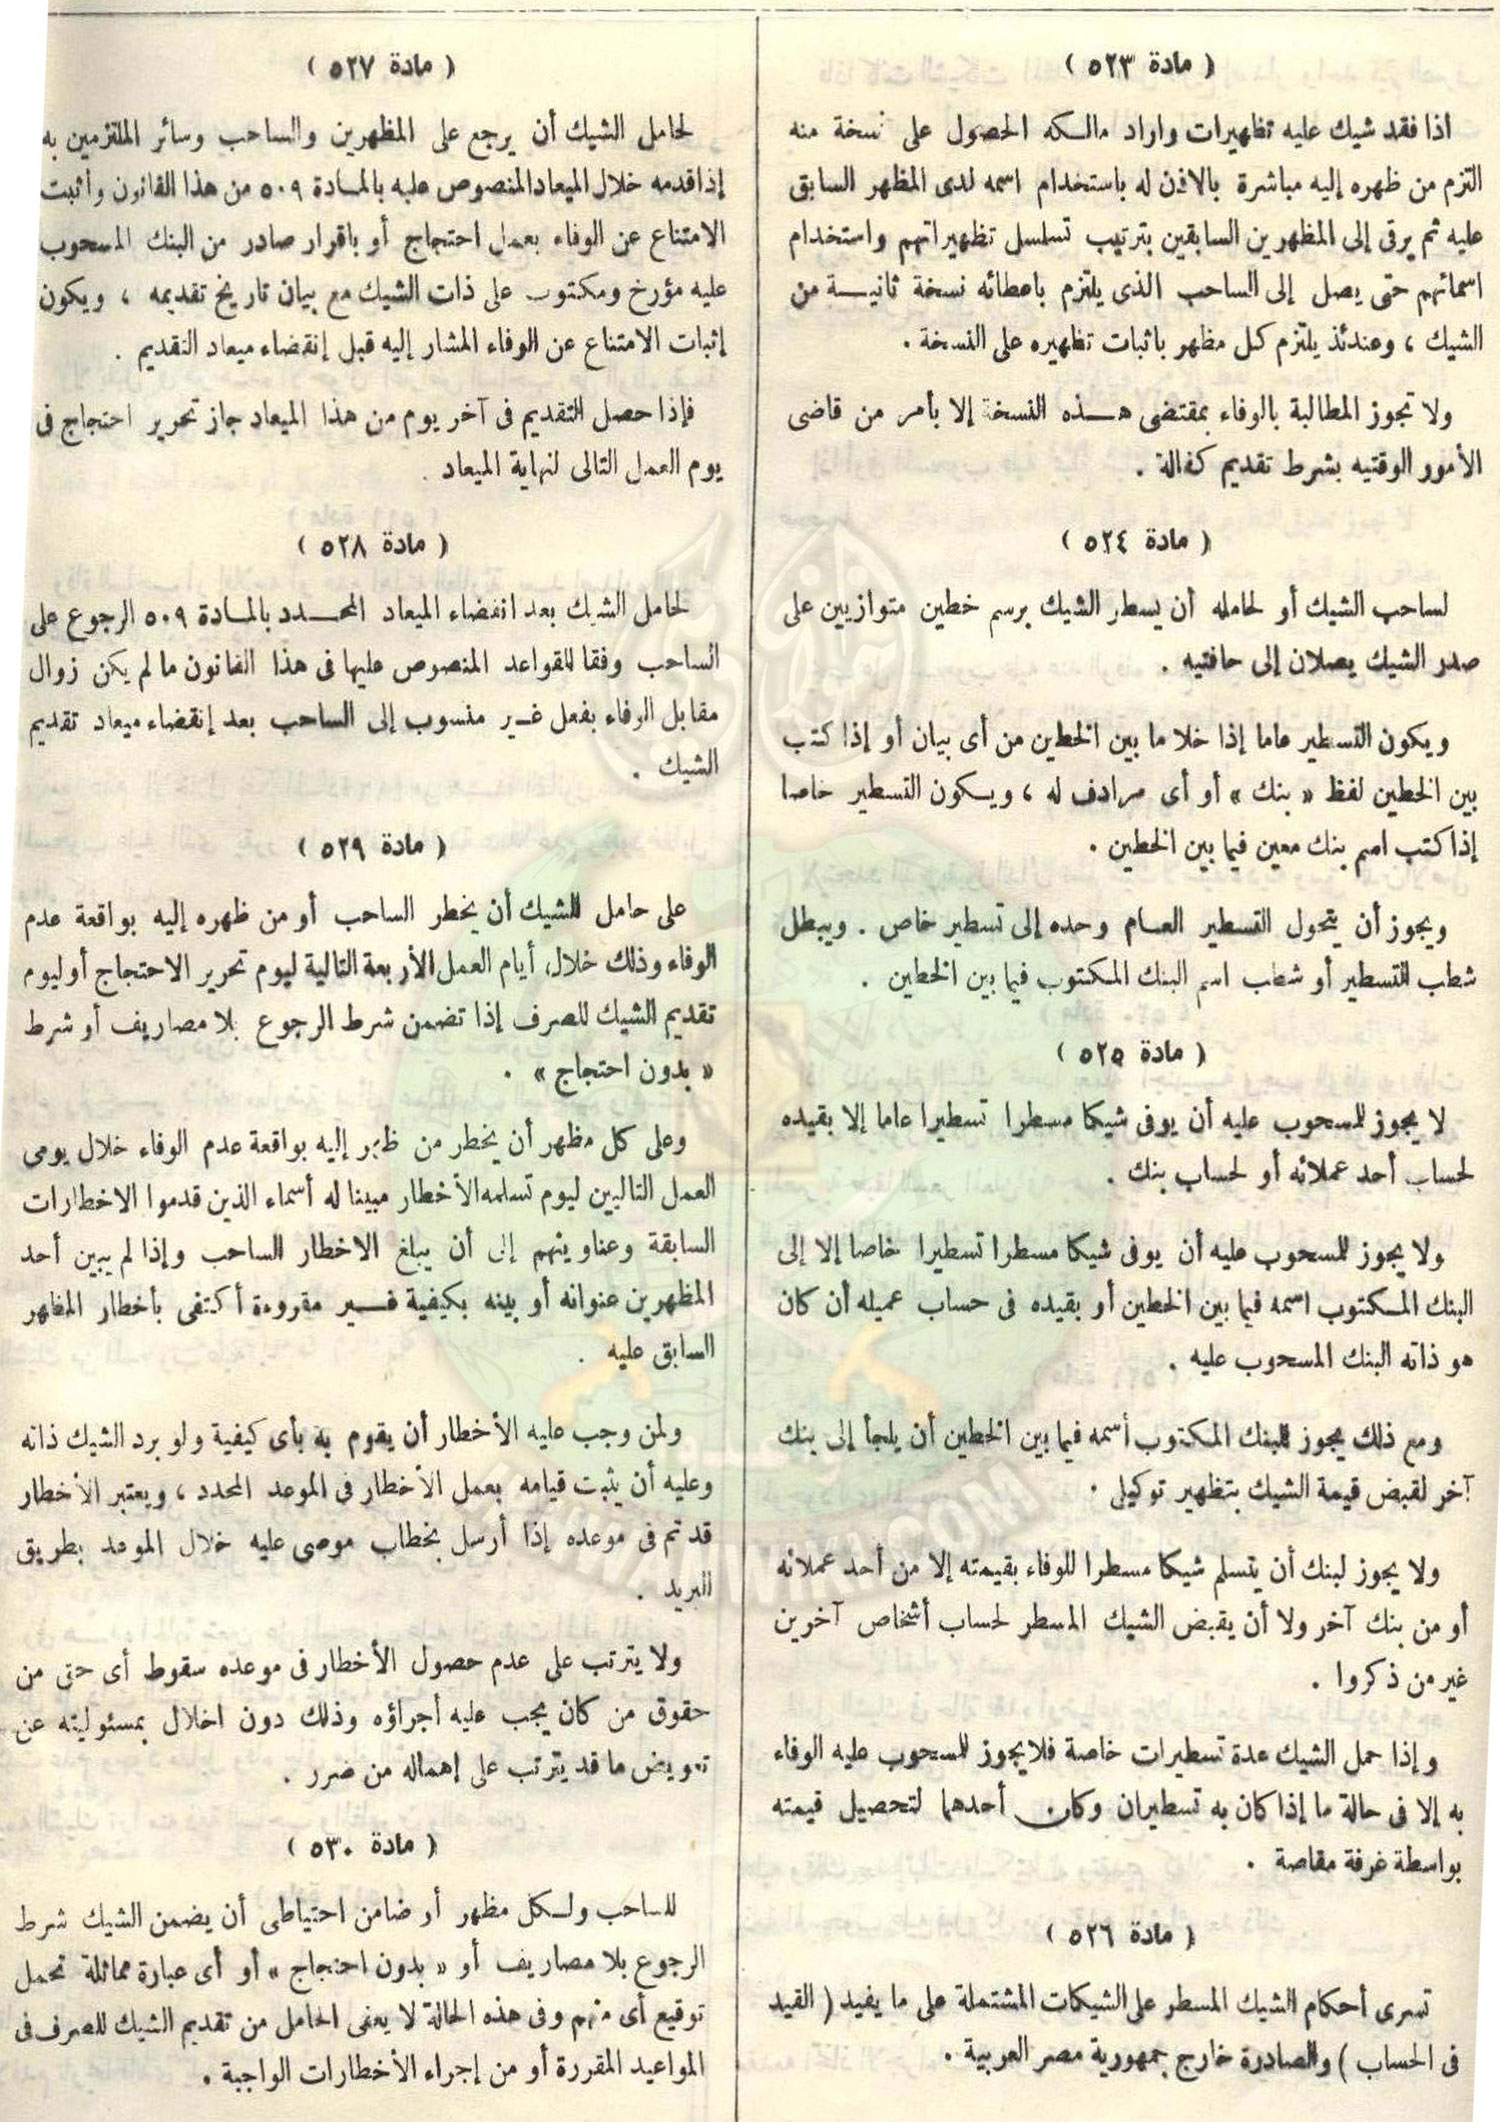 ( مادة ٥٢٣ )
اذا فقد شيك عليه تظهيرات واراد مالكه الحصول على نسخة منه
التزم من ظهره إليه مباشرة بالاذن له باستخدام اسمه لدى المظهر السابق
عليه ثم يرقى إلى المظهرين السابقين بترتيب تسلسل تظهيراتهم واستخدام
اسمائهم حتى يصل إلى الساحب الذى يلتزم باعطائه نسخة ثانية من
الشيك ، وعندئذ يلتزم كل مظهر باثبات تظهيره على النسخة .
ولا تجوز المطالبة بالوفاء بمقتضى هذه النسخة إلا بأمر من قاضى
الأمور الوقتيه بشرط تقديم كفالة .
( مادة ٥٢٤ )
لساحب الشيك أو لحامله أن يسطر الشيك برسم خطين متوازيين على
صدر الشيك يصلان إلى حافتيه .
ويكون التسطير عاما إذا خلا ما بين الخطين من أى بيان أو إذا كتب
بين الخطين لفظ « بنك » أو أى مرادف له ، ويكون التسطير خاصا
إذا كتب اسم بنك معين فيما بين الخطين .
ويجوز أن يتحول التسطير العام وحده إلى تسطير خاص . ويبطل
شطب التسطير أو شطب اسم البنك المكتوب فيما بين الخطين .
( مادة ٥٢٥ )
لا يجوز للمسحوب عليه أن يوفى شيكا مسطرا تسطيرا عاما إلا بقيده
لحساب أحد عملائه أو لحساب بنك .
ولا يجوز للمسحوب عليه أن يوفى شيكا مسطرا تسطيرا خاصا إلا إلى
البنك المكتوب اسمه فيما بين الخطين أو بقيده فى حساب عميله أن كان
هو ذاته البنك المسحوب عليه .
ومع ذلك يجوز للبنك المكتوب أسمه فيما بين الخطين أن يلجأ إلى بنك
آخر لقبض قيمة الشيك بتظهير توكيلى .
ولا يجوز لبنك أن يتسلم شيكا مسطرا للوفاء بقيمته إلا من أحد عملائه
أو من بنك آخر ولا أن يقبض الشيك المسطر لحساب أشخاص آخرين
غير من ذكروا .
وإذا حمل الشيك عدة تسطيرات خاصة فلا يجوز للمسحوب عليه الوفاء
به إلا فى حالة ما إذا كان به تسطيران وكان أحدهما لتحصيل قيمته
بواسطة غرفة مقاصة .
( مادة ٥٢٦ )
تسرى أحكام الشيك المسطر على الشيكات المشتملة على ما يفيد ( القيد
فى الحساب ) والصادرة خارج جمهورية مصر العربية .
( مادة ٥٢٧ )
لحامل الشيك أن يرجع على المظهرين والساحب وسائر الملتزمين به
إذا قدمه خلال الميعاد المنصوص عليه بالمادة ٥٠٩ من هذا القانون وأثبت
الامتناع عن الوفاء بعمل احتجاج أو باقرار صادر من البنك المسحوب
عليه مؤرخ ومكتوب على ذات الشيك مع بيان تاريخ تقديمه ، ويكون
إثبات الامتناع عن الوفاء المشار إليه قبل إنقضاء ميعاد التقديم .
فإذا حصل التقديم فى آخر يوم من هذا الميعاد جاز تحرير احتجاج فى
يوم العمل التالى لنهاية الميعاد .
( مادة ٥٢٨ )
لحامل الشيك بعد انقضاء الميعاد المحدد بالمادة ٥٠٩ الرجوع على
الساحب وفقا للقواعد المنصوص عليها فى هذا القانون ما لم يكن زوال
مقابل الوفاء بفعل غير منسوب إلى الساحب بعد إنقضاء ميعاد تقديم
الشيك .
( مادة ٥٢٩ )
على حامل الشيك أن يخطر الساحب أو من ظهره إليه بواقعة عدم
الوفاء وذلك خلال أيام العمل الأربعة التالية ليوم تحرير الاحتجاج أو ليوم
تقديم الشيك للصرف إذا تضمن شرط الرجوع بلا مصاريف أو شرط
« بدون احتجاج » .
وعلى كل مظهر أن يخطر من ظهر إليه بواقعة عدم الوفاء خلال يومى
العمل التاليين ليوم تسلمه الأخطار مبينا له أسماء الذين قدموا الاخطارات
السابقة وعناوينهم إلى أن يبلغ الاخطار الساحب وإذا لم يبين أحد
المظهرين عنوانه أو بينه بكيفية غير مقروءة أكتفى بأخطار المظهر
السابق عليه .
ولمن وجب عليه الأخطار أن يقوم به بأى كيفية ولو برد الشيك ذاته
وعليه أن يثبت قيامه بعمل الأخطار فى الموعد المحدد ، ويعتبر الأخطار
قد تم فى موعده إذا أرسل بخطاب موصى عليه خلال الموعد بطريق
البريد .
ولا يترتب على عدم حصول الأخطار فى موعده سقوط أى حق من
حقوق من كان يجب عليه أجراؤه وذلك دون اخلال بمسئوليته عن
تعويض ما قد يترتب على إهماله من ضرر .
( مادة ٥٣٠ )
للساحب ولكل مظهر أو ضامن احتياطى أن يضمن الشيك شرط
الرجوع بلا مصاريف أو « بدون احتجاج » أو أى عبارة مماثلة تحمل
توقيع أى منهم وفى هذه الحالة لا يعفى الحامل من تقديم الشيك للصرف فى
المواعيد المقررة أو من إجراء الأخطارات الواجبة .